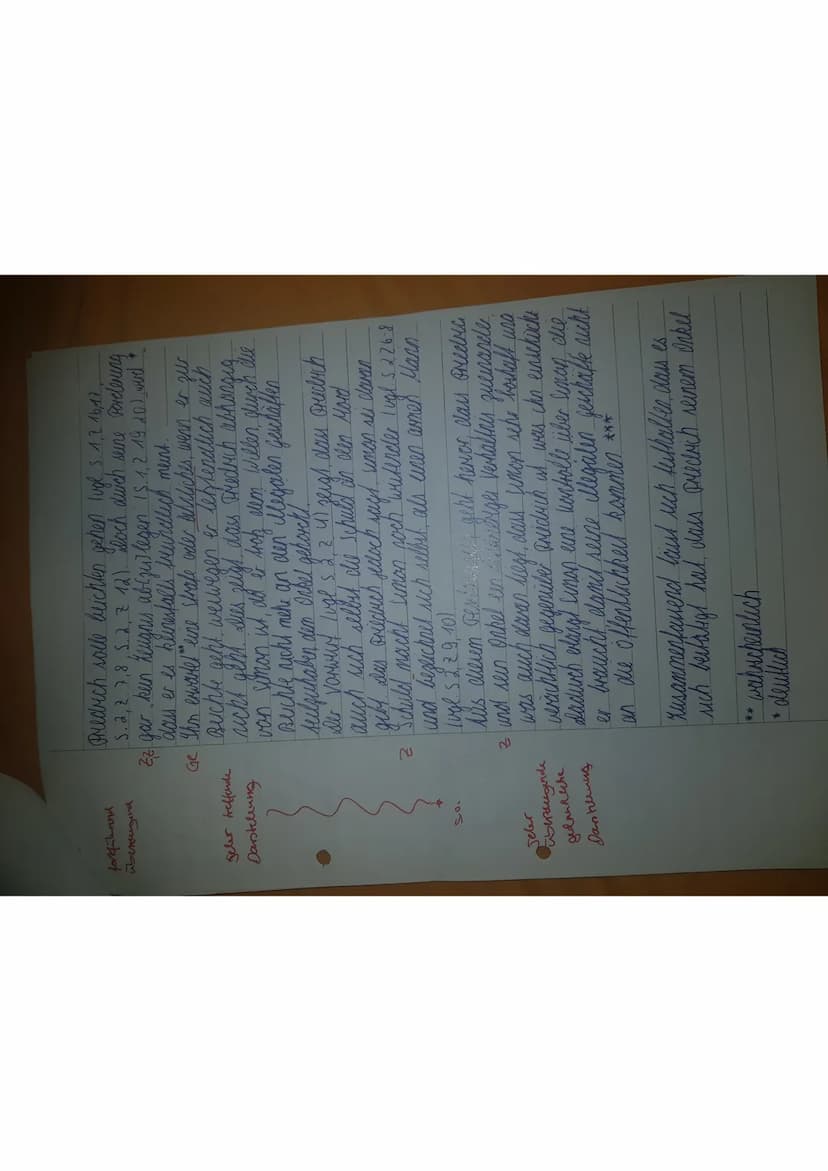 Friedrich solle beichten gehen (vgl. S.1, Z 16 17,
S.2, Z 7, 8 S.2, Z 12) doch durch seine
gar kein Zeugnis abzulegen (S. 1, Z 19 20) wird *
dass er es keinesfalls
Ihn erwartet ** eine Strafe oder wenn er zur
Beichte geht, weswegen er letztendlich auch
nicht geht. Dies zeigt, dass Friedrich abhängig
von Simon ist, da er trotz dem Willen, durch die
Beichte nicht mehr an den illegalen Geschäften
teilzuhaben, dem Onkel gehorcht.
Der Vorwurf (vgl. S 2, Z 4) zeigt, dass Friedrich
auch sich selbst die Schuld an dem Mord
gibt. Als Friedrich jedoch sagt, Simon sei daran
Schuld, macht Simon noch (vgl. S 2 Z 6-8
und sich selbst, als einen armen Mann
(vgl. S 2 Z 9, 10)
Aus diesem geht hervor, dass Friedrich
und sein Onkel ein Verhältnis zueinander
was auch daran liegt, dass Simon sehr boshaft und
gegenüber Friedrich ist, was ihn
dadurch erlangt Simon eine Kontrolle über die
er braucht, damit seine illegalen Geschäfte nicht
an die Öffentlichkeit kommen ***
Zusammenfassend lässt sich festhalten, dass es
sich bestätigt hat, dass Friedrich seinem Onkel
** wahrscheinlich
* deutlich
fortführend
überzeugend
Zf
GR
sehr treffende
Darstellung
Z
s.o.
Z
sehr
überzeugende
gedankliche
Darstellung